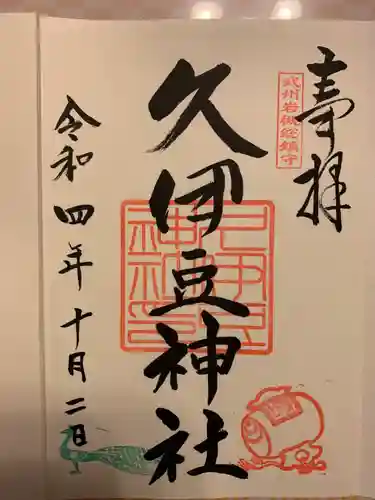 奉拝
武州岩槻総鎮守
久伊豆神社
令和四年十月二日